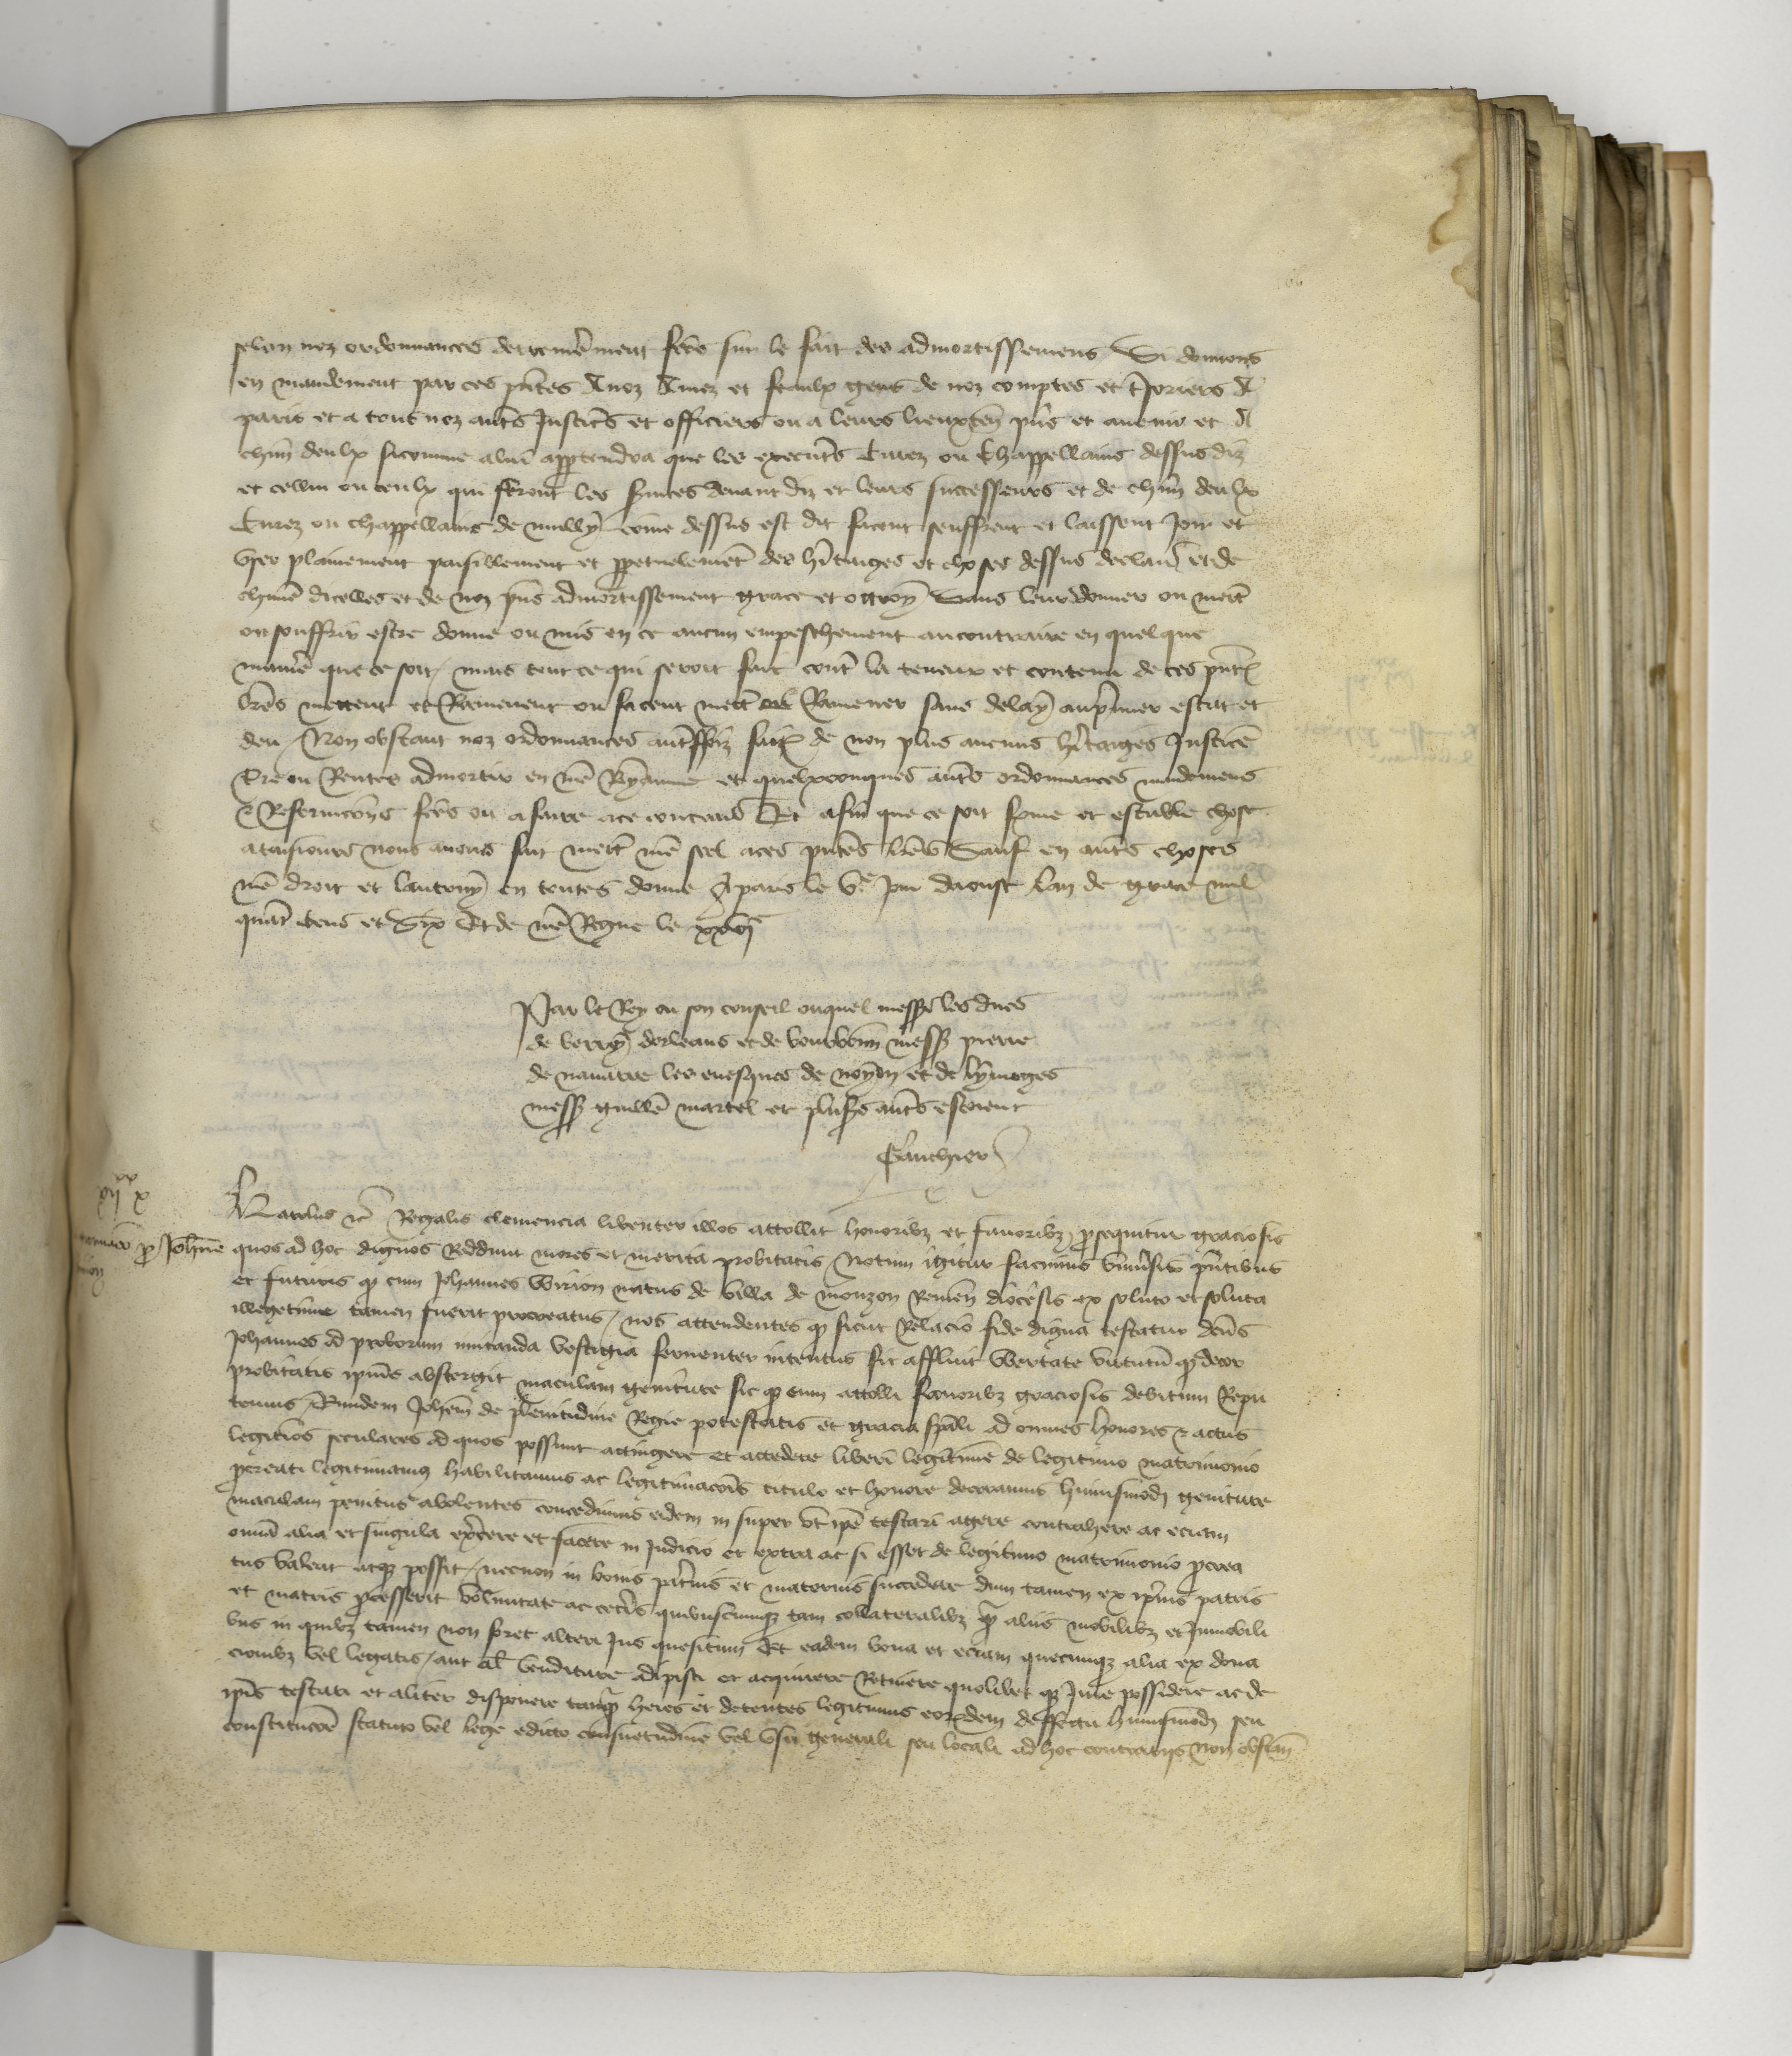 selon noz ordonnances derremement fces sur le fait des admortissemens Si donnons
en mandement par ces pntes A noz Amez et feaulx gens de noz comptes et tsoriers A
paris et a tous noz autres Justics et officiers ou a leurs lieuxten pns et auenir et A
chun deulx sicomme a lui appartendra que les executs Curez ou Chappellains dessus diz
et cellui ou ceulx qui feront les seruices deuant diz et leurs successeurs et de chun deulx
Curez ou chappellains de come dessus est dit facent seuffrent et laissent Joir et
vser plainement paisiblement et ppetuelement des hitaiges et choses dessus declaire et de
chune dicelles et de noz pns admortissement grace et ottroy Sans leur donner ou mett
ou souffrir estre donne ou mis en ce aucun empeschement au contraire en quelque
manie que ce soit / mais tout ce qui seroit fait cont la teneur et contenu de ces pntes
lres mettent et Ramenent ou facent mett et Ramener sans delay au pmier estat et
deu / Non obstant noz ordonnances autffoiz faictes de non plus aucuns hitaiges Justice
Tre ou Rentes admortir en nre Royaume et quelxconques auts ordonnances mandemens
& Restrinctions fces ou a faire a ce contraires Et afin que ce soit ferme et estable chose
a tousiours nous auons fait mett nre seel a ces pntes lres Sauf en auts choses
nre droit et lautruy en toutes donne A paris le ve Jour daoust lan de grace mil
quat cens et Six Et de nre Regne le xxvje
Par le Roy en son conseil ouquel messrs les ducs
de berry dorleans et de bourbonn messe pierre
de nauarre les euesques de noyon et de lymoges
messe guille martel et plusrs auts estoient
Gauchier
xijxx x
pro Johnne
Karolus etc Regalis clemencia libenter illos attollit honoribz et fauoribz prosequitur graciosis
quos ad hoc dignos Reddunt mores et merita probitatis / Notum igitur facimus vniusis pntibus
et futuris q cum Johannes Wirion natus de villa de monzon Remen diocesis ex soluto et soluta
illegetime tamen fuerit procreatus / nos attendentes q sicut Relacio fide digna testatur dcus
Johannes ad proborum imitanda vestigia feruenter intentus sic affluit vbertate virtutu q decor
probitatis ipius abstergit maculam geniture sic q eum attolli fauoribz graciosis debitum Repu
temus Eundem Johem de plenitudine Regie potestatis et gracia spali ad omnes honores & actus
legitios seculares ad quos possunt attingere et accedere liberi legitime de legitimo matrimonio
pcreati legitimamq habilitamus ac legitimacois titulo et honore decoramus huiusmodi geniture
maculam penitus abolentes concedimus eidem in super vt ipe testari agere contrahere ac eciam
omia alia et singula exercere et facere in Judicio et extra ac si esset de legitimo matrimonio pcrea
tus valeat atq possit / necnon in bonis patnis et maternis succedere dum tamen ex ipius patris
et matris pcesserit voluntate ac ceteris quibuscunq tam collateralibz q aliis mobilibz et Jmmobili
bus in quibz tamen non foret alteri Jus quesitum Et eadem bona et eciam quecunq alia ex dona
cionibz vel legatis / aut al venditure adipisci et acquirere Retinere quolibet q Jure possidere ac de
ipis testari et aliter disponere tamq heres et detentor legitimus eorumdem deffectu huiusmodi seu
constitucoe statuto vel lege edicto consuetudine vel vsu generali seu locali ad hoc contrariis non obstan